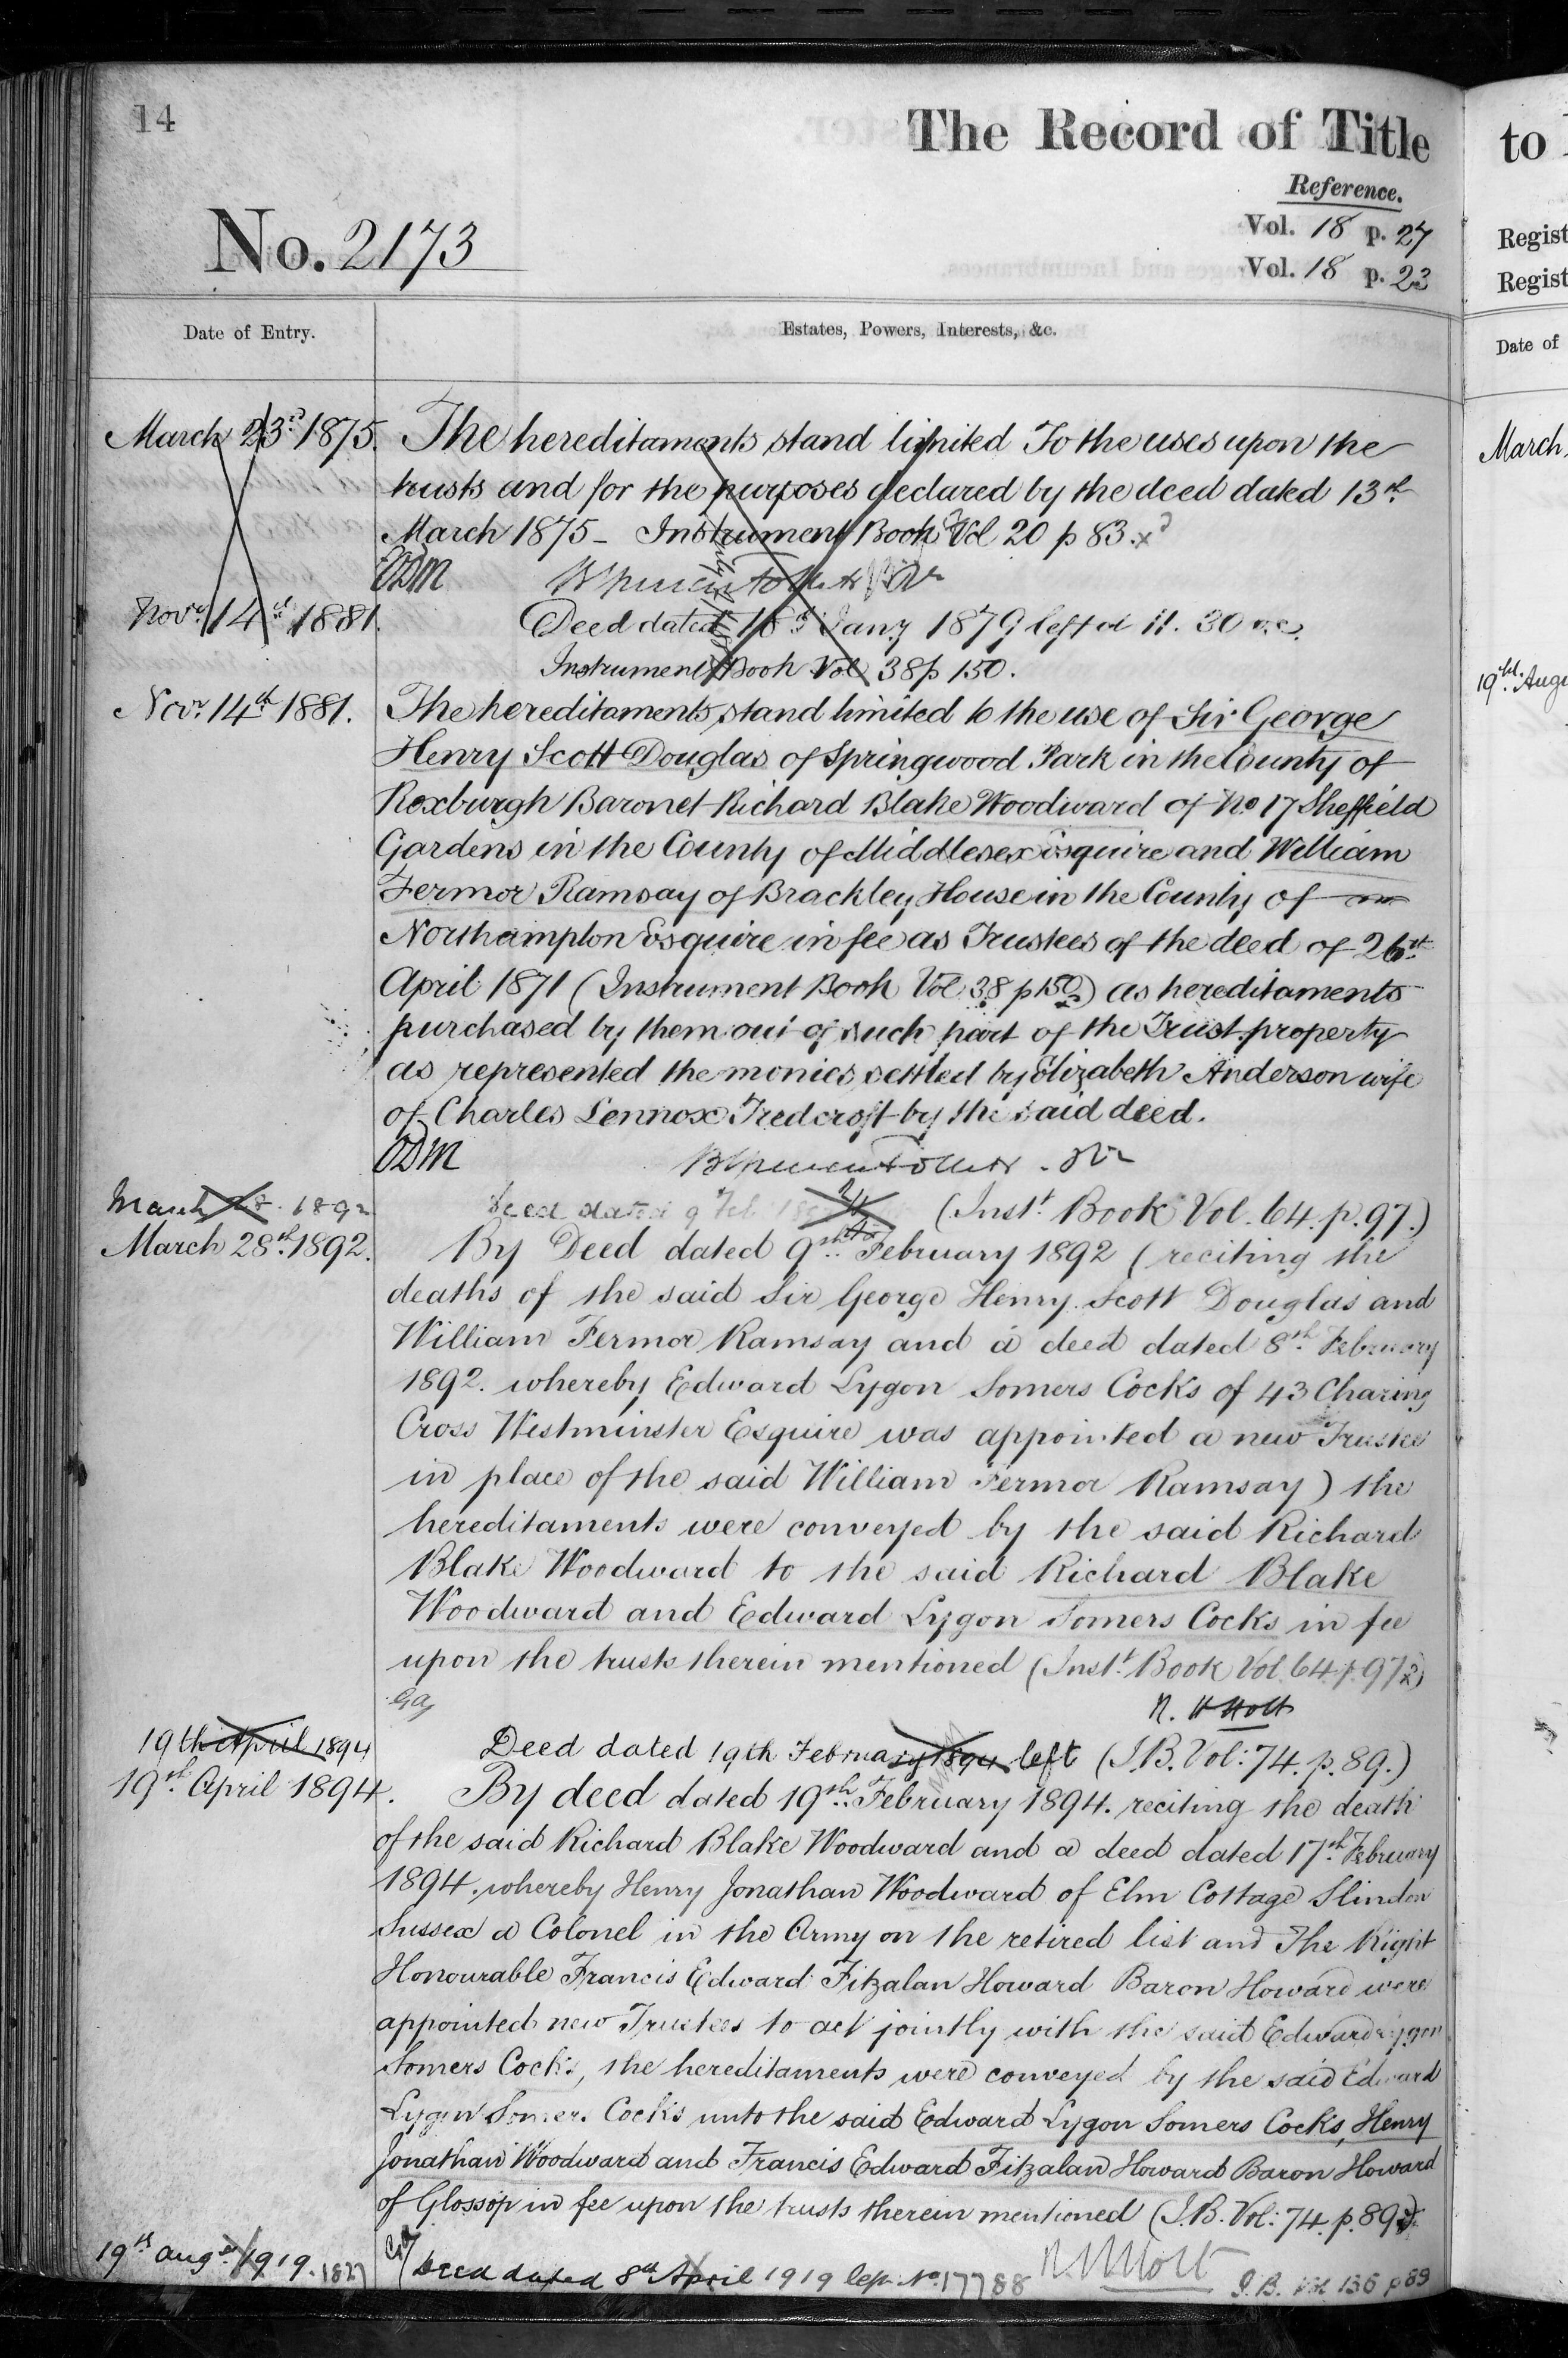 14
The Record of Title
Reference.
No. 2173
Vol. 18 p. 27
Vol. 18 p. 23
Date of Entry.
Estates, Powers, Interests, &c.
March 23rd 1875. The hereditaments stand limited To the uses upon the
trusts and for the purposes declared by the deed dated 13th
March 1875 - Instrument Book Vol 20 p 83.
ODM
Novr. 14th 1881. Deed dated 18th Jany 1879 left at 11. 30
Instrument Book Vol 38 p 150.
Novr. 14th 1881. The hereditaments stand limited to the use of Sir George
Henry Scott Douglas of Springwood Park in the County of
Roxburgh Baronet Richard Blake Woodward of No 17 Sheffield
Gardens in the County of Middlesex Esquire and William
Fermor Ramsay of Brackley House in the County of
Northampton Esquire in fee as Trustees of the deed of 26th
April 1871 (Instrument Book Vol 38 p 150) as hereditaments
purchased by them out of such part of the Trust property
as represented the monies settled by Elizabeth Anderson wife
of Charles Lennox Tredcroft by the said deed.
ODM
March 28. 1892 Deed dated 9 Feb (Inst. Book Vol. 64. p. 97.)
March 28th 1892. By Deed dated 9th February 1892 (reciting the
deaths of the said Sir George Henry Scott Douglas and
William Fermor Ramsay and a deed dated 8th February
1892. whereby Edward Lygon Somers Cocks of 43 Charing
Cross Westminster Esquire was appointed a new Trustee
in place of the said William Fermor Ramsay) the
hereditaments were conveyed by the said Richard
Blake Woodward to the said Richard Blake
Woodward and Edward Lygon Somers Cocks in fee
upon the trusts therein mentioned (Inst. Book Vol. 64. p. 97)
R. H Holt
19th April 1894 Deed dated 19th February 1894 left (I.B. Vol: 74. p. 89.)
19th April 1894. By deed dated 19th February 1894. reciting the death
of the said Richard Blake Woodward and a deed dated 17th February
1894. whereby Henry Jonathan Woodward of Elm Cottage Slindon
Sussex a Colonel in the Army on the retired list and The Right
Honourable Francis Edward Fitzalan Howard Baron Howard were
appointed new Trustees to act jointly with the said Edward Lygon
Somers Cocks, the hereditaments were conveyed by the said Edward
Lygon Somers Cocks unto the said Edward Lygon Somers Cocks, Henry
Jonathan Woodward and Francis Edward Fitzalan Howard Baron Howard
of Glossop in fee upon the trusts therein mentioned (I.B. Vol: 74. p. 89)
19th augt 1919. Deed dated 8th April 1919 No. 17788 Holt I.B. Vol 136 p 89
to
Regist
Regist
Date of
March
19th Augu